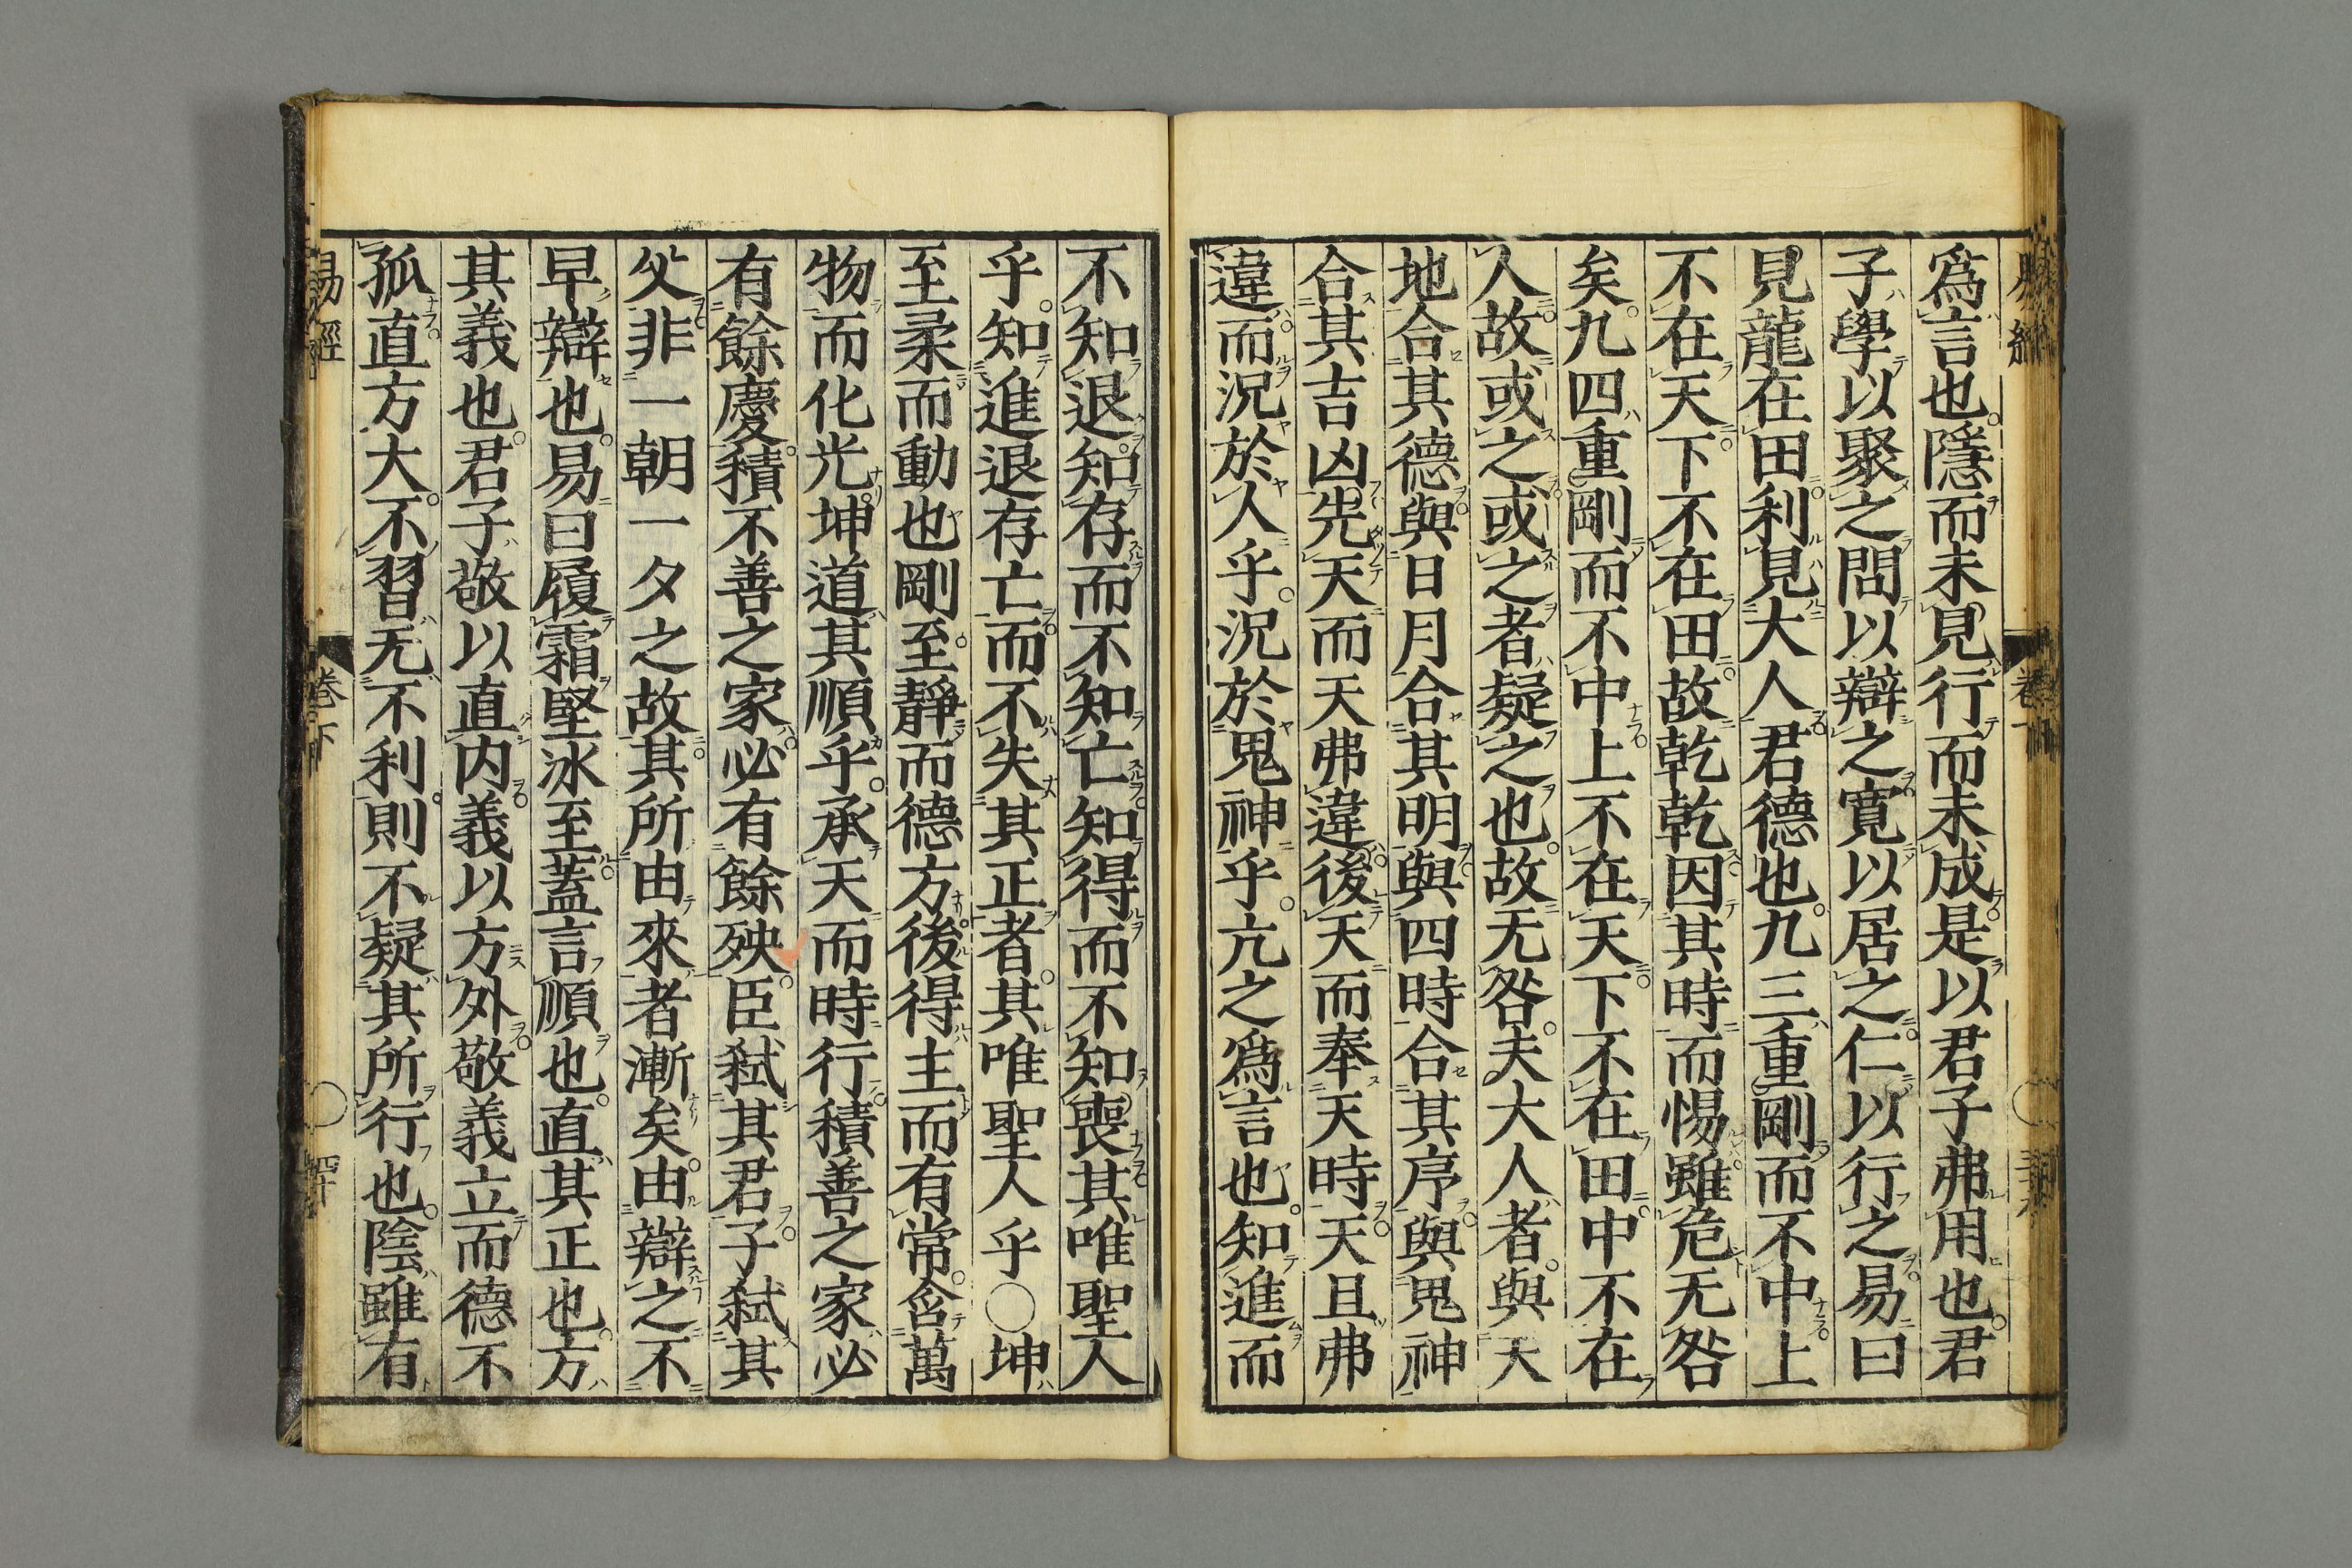 爲言也隱而未見行而未成是以君子弗用也君
子學以聚之問以辯之寬以居之仁以行之易曰
見龍在田利見大人君德也九三重剛而不中上
不在天下不在田故乾乾因其時而惕雖危无咎
矣九四重剛而不中上不在天下不在田中不在
人故或之或之者疑之也故无咎夫大人者與天
地合其德與日月合其明與四時合其序與鬼神
合其吉凶先天而天弗違後天而奉天時天且弗
違而況於人乎況於鬼神乎亢之爲言也知進而
不知退知存而不知亡知得而不知喪其唯聖人
乎知進退存亡而不失其正者其唯聖人乎○坤
至柔而動也剛至靜而德方後得主而有常含萬
物而化光坤道其順乎承天而時行積善之家必
有餘慶積不善之家必有餘殃臣弑其君子弑其
父非一朝一夕之故其所由來者漸矣由辯之不
早辯也易曰履霜堅冰至蓋言順也直其正也方
其義也君子敬以直内義以方外敬義立而德不
孤直方大不習无不利則不疑其所行也陰雖有
易經 卷下 ○ 四十